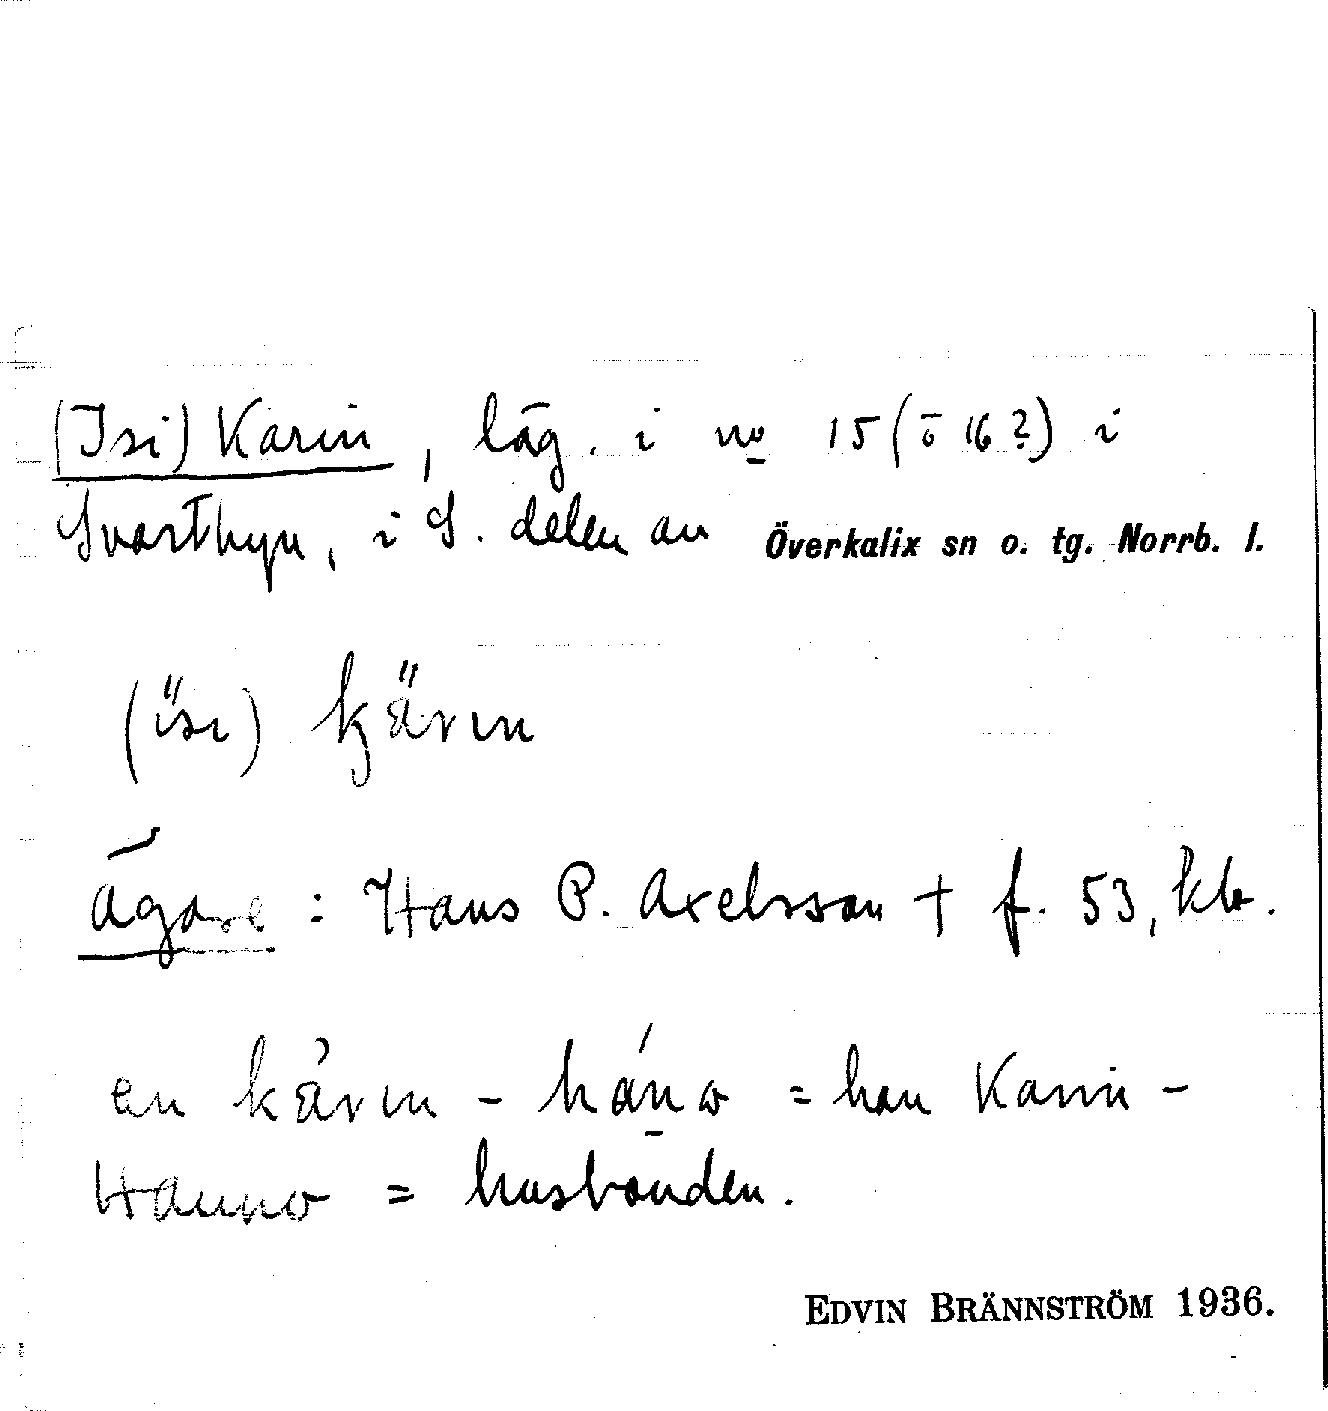 (Isi) Karin, läg. i no 15 (o 16?) i
Svartbyn, i S. delen av Överkalix sn o. tg. Norrb. l.
(isi) kärin
ägare: Hans P. Axelsson † f. 53, kb.
en kärin - háno = han Karin-
Hanno = husbonden.
EDVIN BRÄNNSTRÖM 1936.